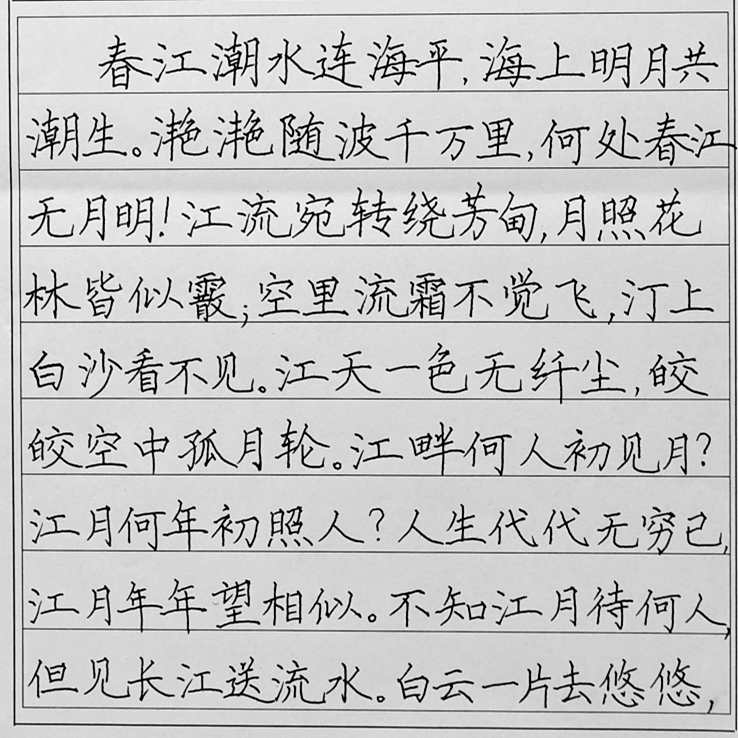 春江潮水连海平,海上明月共
潮生。滟滟随波千万里,何处春江
无月明!江流宛转绕芳甸,月照花
林皆似霰;空里流霜不觉飞,汀上
白沙看不见。江天一色无纤尘,皎
皎空中孤月轮。江畔何人初见月?
江月何年初照人?人生代代无穷已,
江月年年望相似。不知江月待何人,
但见长江送流水。白云一片去悠悠,